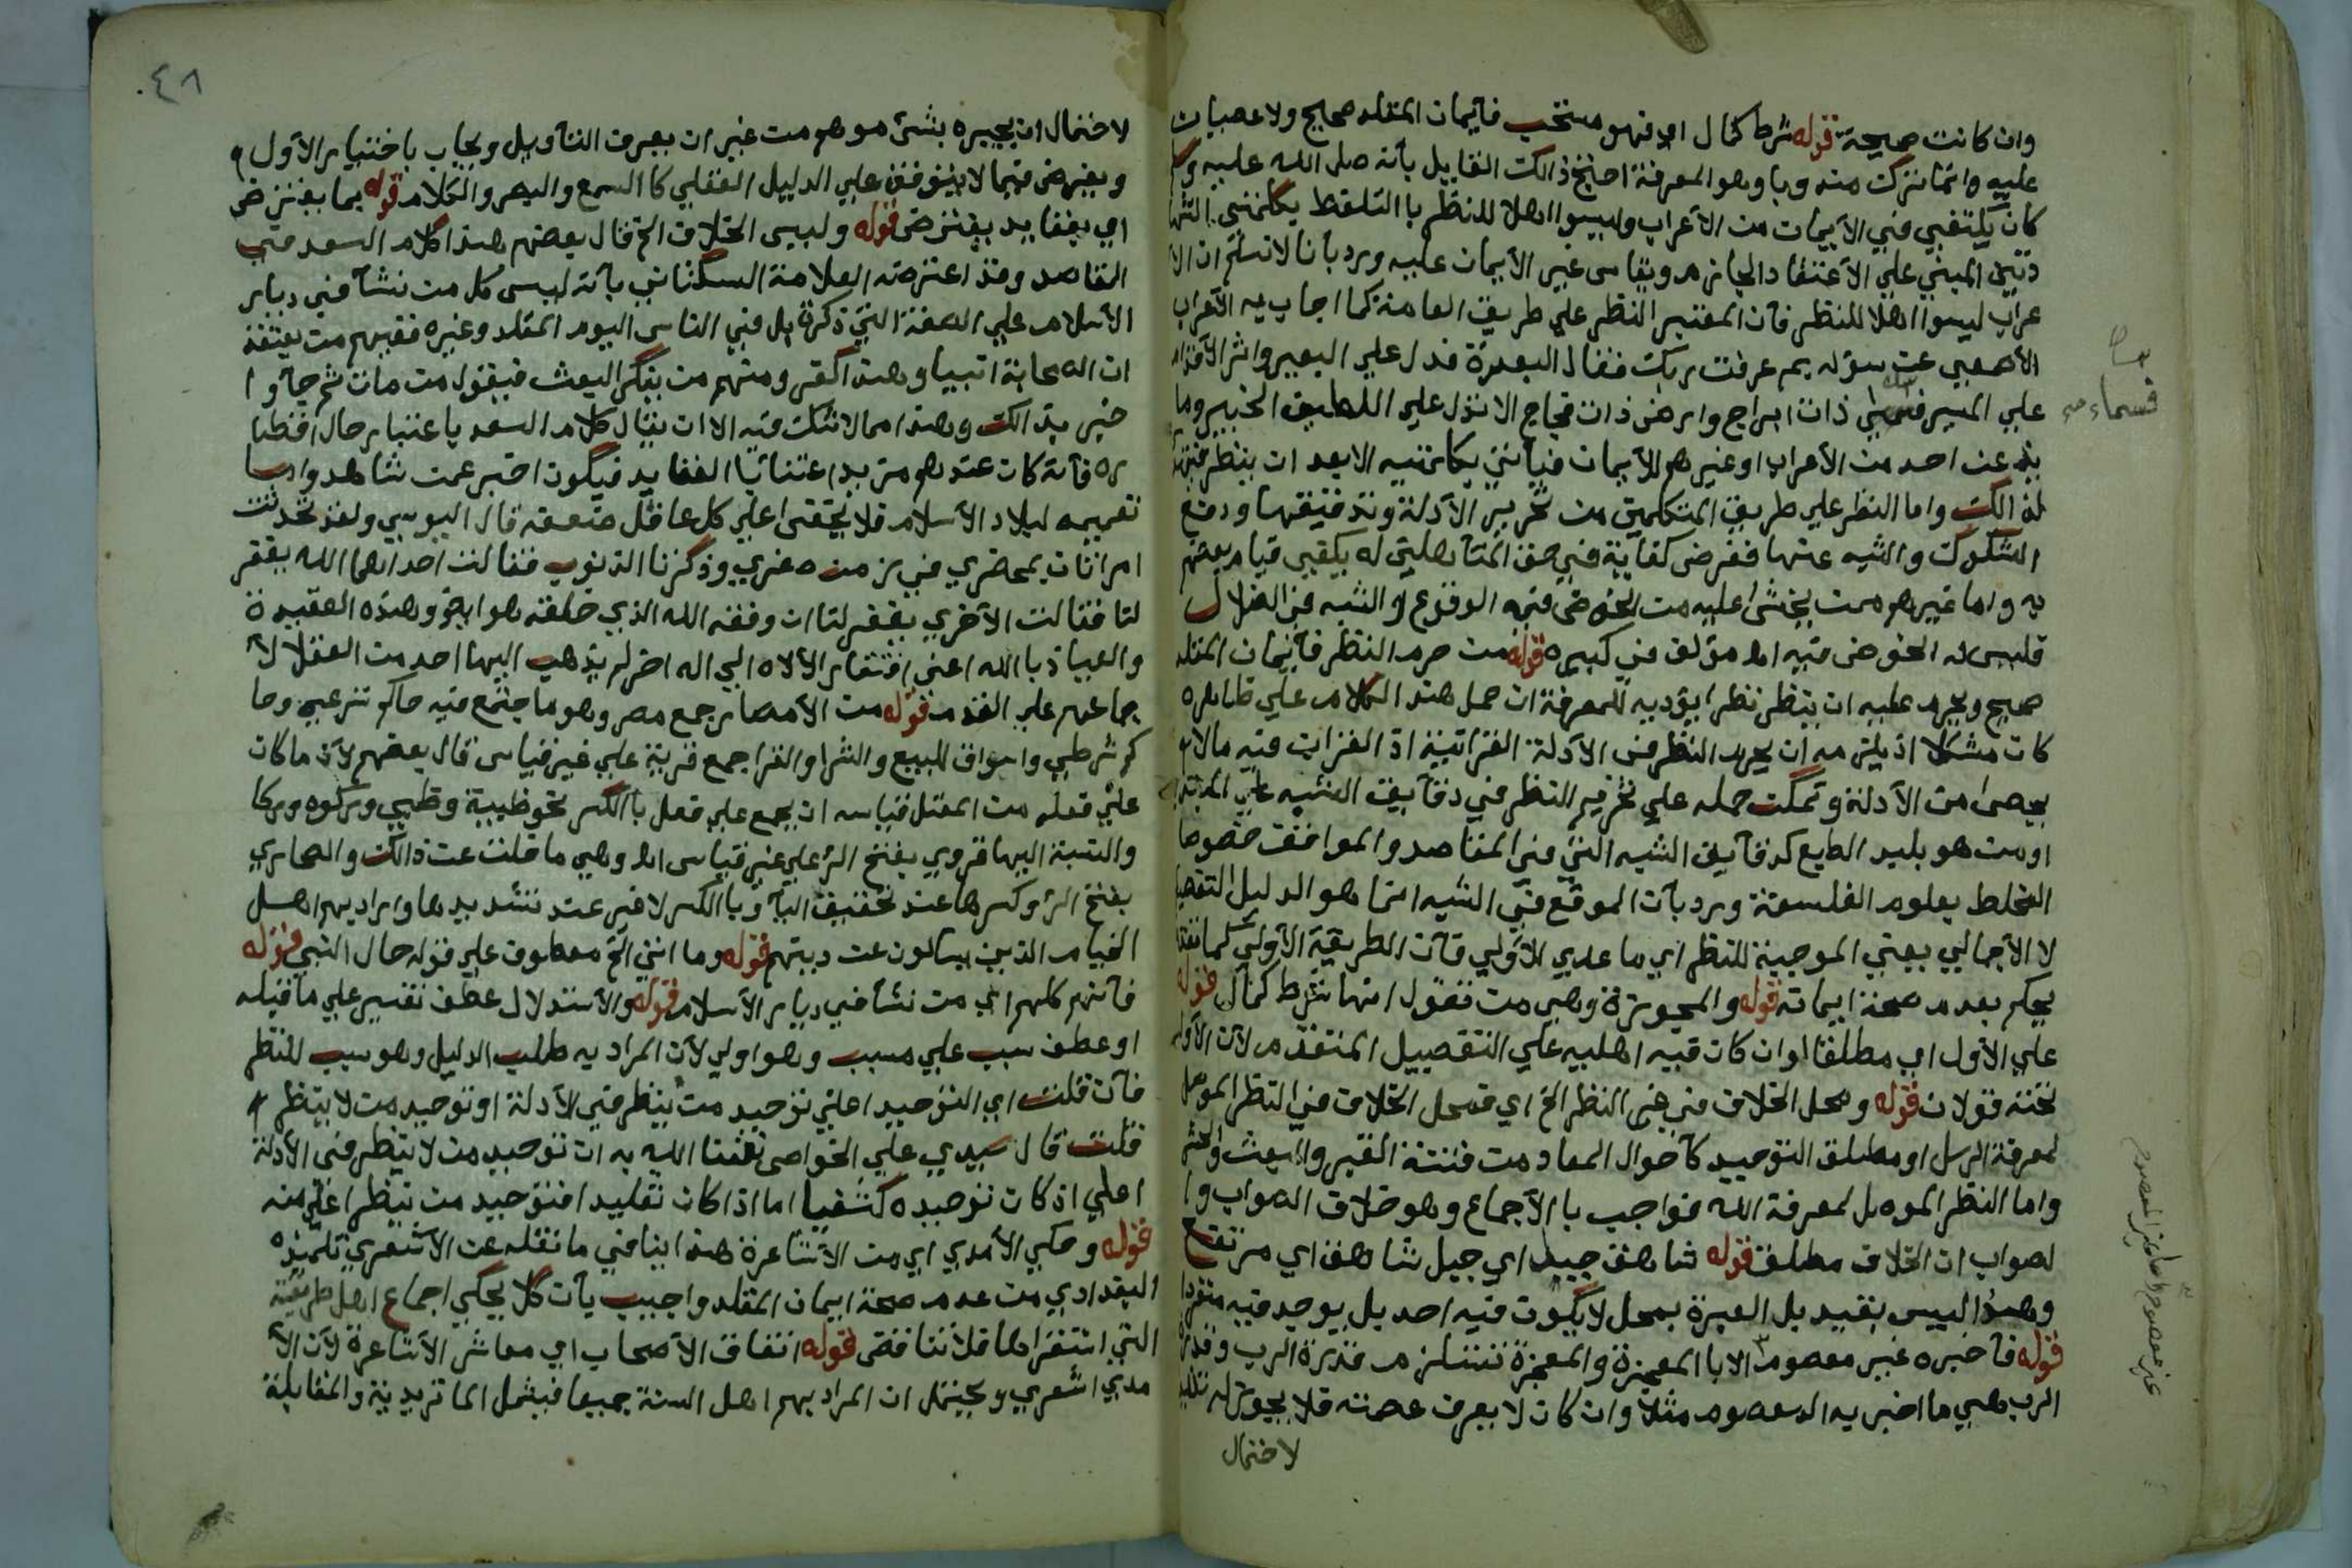 وان كانت صحيحة قوله شرط كمال اي فهو مستحب فأيمان المقلد صحيح ولا عصيان
عليه وانما ترك مندوبا وهو المعرفة احتج ذالك القايل بأنه صلى الله عليه وسلم
كان يكتفي في الأيمان من الأعراب وليسوا اهلا للنظر باالتلفظ بكلمتي الشها
دتين المبني علي الأعتقاد الجازم ويقاس غير الأيمان عليه ورد بأنا لا نسلم ان الأ
عراب ليسوا اهلا للنظر فأن المعتبر النظر علي طريق العامة كما اجاب به الأعراب
الأصمعي عن سؤله بم عرفت ربك فقال البعرة تدل علي البعير واثر الأقدام
علي المسير فسماء ذات ابراج وارض ذات فجاج الا تدل علي اللطيف الخبير وما
يذعن احد من الأعراب او غيرهم للأيمان فيأتي بكلمتيه الا بعد ان ينظر فيهتدي
لذالك واما النظر علي طريق المتكلمين من تحرير الأدلة وتدقيقها ودفع
الشكوك والشبه عنها ففرض كفاية في حق المتأهلين له يكفي قيام بعضهم
به واما غيرهم ممن يخشى عليه من الخوض فيه الوقوع في الشبه والضلال
فليس له الخوض فيه اه مؤلف في كبيره قوله من حرم النظر فأيمان المقلد
صحيح ويحرم عليه ان ينظر نظرا يؤديه للمعرفة ان حمل هذا الكلام علي ظاهره
كان مشكلا اذ يلزمه ان يحرم النظر في الأدلة القرانية اذ القران فيه مالا
يحصى من الأدلة ويمكن حمله علي تحريم النظر في دقأيق الشبه علي المبتدي
او من هو بليد الطبع كدقأيق الشبه التي في المقاصد والمواقف خصوصا
المخلط بعلوم الفلسفة ورد بأن الموقع في الشبه انما هو الدليل التفصيلي
لا الأجمالي يعني الموجبة للنظر اي ما عدي الأولي فأن الطريقة الأولي
يحكم بعدم صحة ايمانه قوله والمجوزة وهي من تقول انها شرط كمال قوله
علي الأول اي مطلقا او ان كان فيه اهلية علي التفصيل المتقدم لأن الأول
تحته قولان قوله ومحل الخلاف في غير النظر الخ اي فمحل الخلاف في النظر الموصل
لمعرفة الرسل او مطلق التوحيد كأحوال المعاد من فتنة القبر والبعث والحشر
واما النظر الموصل لمعرفة الله فواجب باالأجماع وهو خلاف الصواب وا
لصواب ان الخلاف مطلق قوله شاهق جبل اي جبل شاهق اي مرتفع
وهذا ليس بقيد بل العبرة بمحل لا يكون فيه احد بل يوجد فيه منفردا
قوله فأخبره غير معصوم الا باالمعجزة والمعجزة تستلزم قدرة الرب وقدرة
الرب هي ما اخبر به المعصوم مثلا وان كان لا يعرف عصمته فلا يجوز له تقليد
لاحتمال
قسماء صح
غير معصوم اما خبر المعصوم
٤٨
لاحتمال ان يخبره بشئ موهوم من غير ان يعرف التأويل ويجاب باختيار الأول
ويفرض فيما لا يتوقف علي الدليل العقلي كا السمع والبصر والكلام قوله بما يفترض
اي بعقايد يفترض قوله وليس الخلاف الخ قال بعضهم هذا كلام السعد في
المقاصد وقد اعترضه العلامة السكتاني بأنه ليس كل من نشأ في ديار
الأسلام علي الصفة التي ذكرها بل في الناس اليوم المقلد وغيره ففيهم من يعتقد
ان الصحابة انبيا وهذا كفر ومنهم من ينكر البعث فيقول من مات ثم جأوا
خبر بذالك وهذا مما لا شك فيه الا ان يقال كلام السعد باعتبار حال اقطا
ره فأنه كان عندهم مزيد اعتنا بالعقايد فيكون اخبر عمن شاهد واما
تعميمه لبلاد الأسلام فلا يخفى علي كل عاقل ضعفه قال اليوسي ولقد تحدثت
امراتان بمحضري في زمن صغري وذكرنا الذنوب فقالت احداهما الله يغفر
لنا فقالت الأخري يغفر لنا ان وفقه الله الذي خلقه هو ايضا وهذه العقيدة
والعياذ باالله اعني افتقار الأله الي اله اخر لم يذهب اليها احد من العقلا لأ
جماعهم علي القدم قوله من الأمصار جمع مصر وهو ما جتمع فيه حاكم شرعي وحا
كم شرطي واسواق للبيع والشرا والقرا جمع قرية علي غير قياس قال بعضهم لأن ما كان
علي فعله من المعتل فقياسه ان يجمع علي فعل باالكسر نحو ظبية وظبي وركوه وركا
والنسبة اليها قروي بفتح الر علي غير قياس اه وهي ما خلت عن ذالك والصحاري
بفتح الر وكسرها عند تخفيف اليأ وباالكسر لا غير عند تشديدها واراد بهم اهل
الخيام الذين يسالون عن دينهم قوله وما انتي الخ معطوف علي قوله حال النبي قوله
فأنهم كلهم اي من نشأ في ديار الأسلام قوله والأستدلال عطف تفسير علي ما قبله
او عطف سبب علي مسبب وهو اولي لأن المراد به طلب الدليل وهو سبب للنظر
فأن قلت اي التوحيد اعلي توحيد من ينظر في الأدلة او توحيد من لا ينظر
قلت قال سيدي علي الخواص نفعنا الله به ان توحيد من لا ينظر في الأدلة
اعلي اذ كان توحيده كشفيا اما اذا كان تقليدا فتوحيد من ينظر اعلي منه
قوله وحكي الأمدي اي من الأشاعرة هذا ينافي ما نقله عن الأشعري تلميذه
البغدادي من عدم صحة ايمان المقلد واجيب بأن كلا يحكي اجماع اهل طريقته
التي استقراها فلا تناقض قوله اتفاق الأصحاب اي معاشر الأشاعرة لأن الأ
مدي اشعري ويحتمل ان المراد بهم اهل السنة جميعا فيشمل الماتريدية والمقابلة